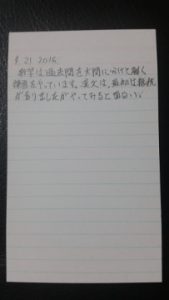 8. 21 2015.
数学は過去問を大問に分けて解く
練習をやっています。漢文は、最初は抵抗
がありましたがやってみると面白い。